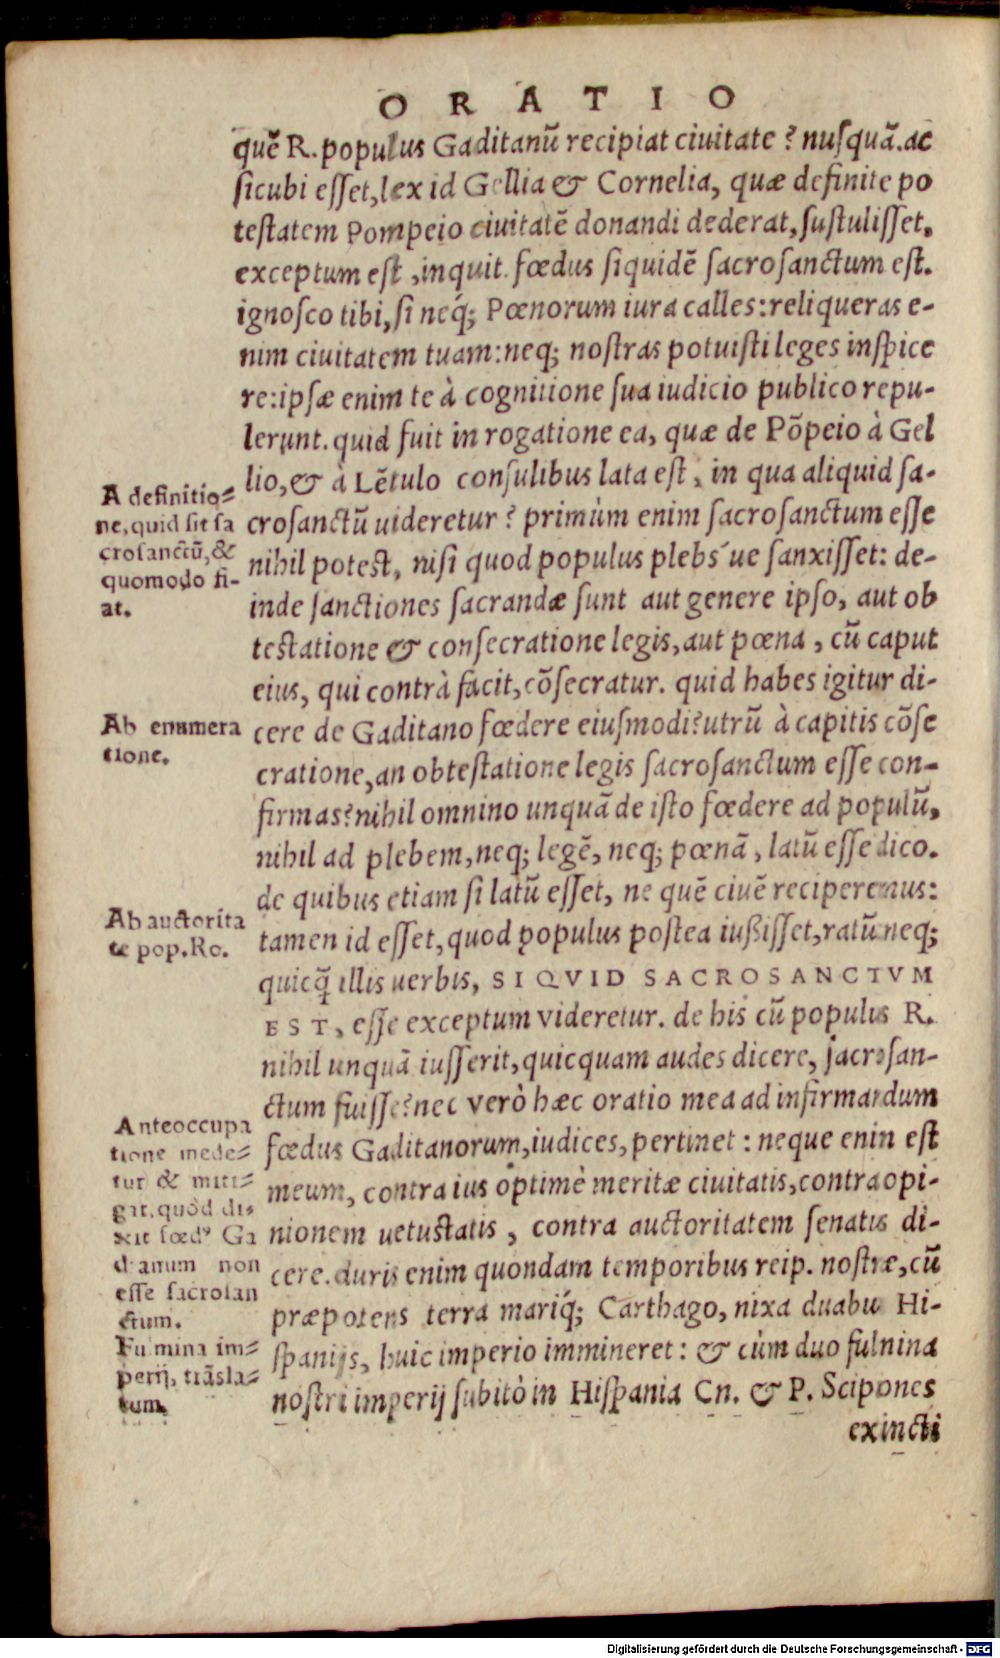 ORATIO
quē R. populus Gaditanū recipiat ciuitate? nusquā. ac
sicubi esset, lex id Gellia & Cornelia, quæ definite po
testatem Pompeio ciuitatē donandi dederat, sustulisset.
exceptum est, inquit. fœdus siquidē sacrosanctum est.
ignosco tibi, si neq́; Pœnorum iura calles: reliqueras e-
nim ciuitatem tuam: neq; nostras potuisti leges inspice
re: ipsæ enim te à cognitione sua iudicio publico repu-
lerunt. quid fuit in rogatione ea, quæ de Pōpeio à Gel
lio, & à Lētulo consulibus lata est, in qua aliquid sa-
crosanctū uideretur? primùm enim sacrosanctum esse
nihil potest, nisi quod populus plebs´ue sanxisset: de-
inde sanctiones sacrandæ sunt aut genere ipso, aut ob
testatione & consecratione legis, aut pœna, cū caput
eius, qui contrà facit, cōsecratur. quid habes igitur di-
cere de Gaditano fœdere eiusmodi? utrū à capitis cōse
cratione, an obtestatione legis sacrosanctum esse con-
firmas? nihil omnino unquā de isto fœdere ad populū,
nihil ad plebem, neq; legē, neq; pœnā, latū esse dico.
de quibus etiam si latū esset, ne quē ciuē reciperemus:
tamen id esset, quod populus postea iußisset, ratū: neq;
quicq̄ illis uerbis, SIQVID SACROSANCTVM
EST, esse exceptum videretur. de his cū populus R.
nihil unquā iusserit, quicquam audes dicere, sacrosan-
ctum fuisse? nec verò hæc oratio mea ad infirmandum
fœdus Gaditanorum, iudices, pertinet: neque enim est
meum, contra ius optimè meritæ ciuitatis, contra opi-
nionem uetustatis, contra auctoritatem senatus di-
cere. duris enim quondam temporibus reip. nostræ, cū
præpotens terra mariq́; Carthago, nixa duabus Hi-
spanijs, huic imperio immineret: & cùm duo fulmina
nostri imperij subitò in Hispania Cn. & P. Scipiones
exincti
A definitio-
ne, quid sit sa
crosanctū, &
quomodo fi-
at.
Ab enumera
tione.
Ab auctorita
te pop. Ro.
Anteoccupa
tione mede-
tur & miti-
gat, quòd di-
xit fœdꝰ Ga
ditanum non
esse sacrosan
ctum.
Fulmina im-
perij, trāsla-
tum.
Digitalisierung gefördert durch die Deutsche Forschungsgemeinschaft - DFG